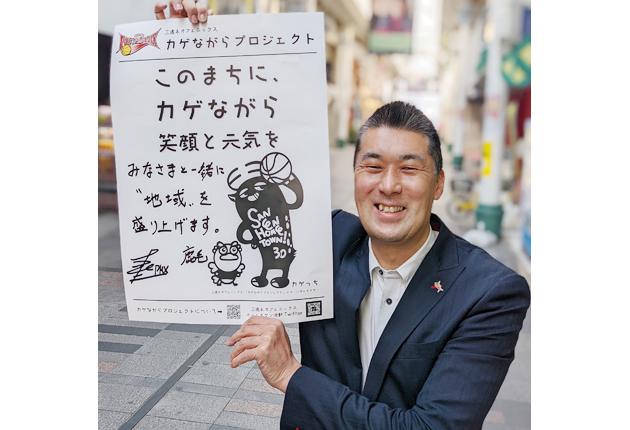 三遠ネオフェニックス
カゲながらプロジェクト
このまちに、
カゲながら
笑顔と元気を
みなさまと一緒に
“地域”を
盛り上げます。
SAN
YEN
HOME
TOWN!!
30
カゲっち
カゲながらプロジェクトについて→
三遠ネオフェニックス